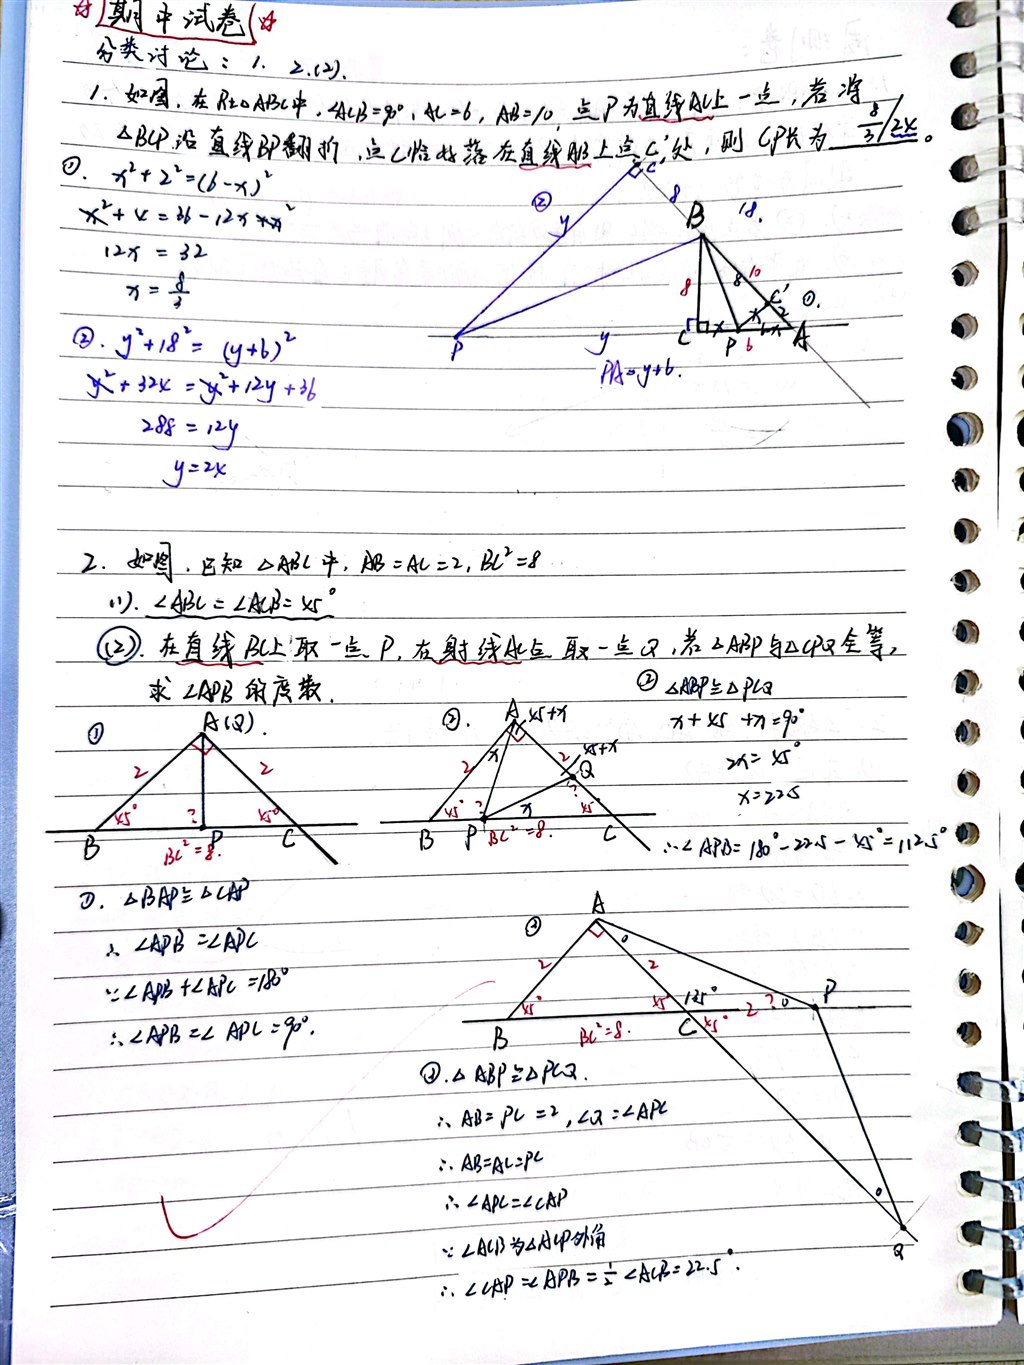 ☆ 期中试卷 ☆
分类讨论：1. 2.(2).
1. 如图，在Rt△ABC中，∠ACB=90°，AC=6，AB=10，点P为直线AC上一点，若将
△BCP沿直线BP翻折，点C恰好落在直线AB上点C'处，则CP长为 8/3/24。
①. x²+2²=(6-x)²
x²+4=36-12x+x²
12x=32
x=8/3
②. y²+18²=(y+6)²
y²+324=y²+12y+36
288=12y
y=24
② y C' 8 B 18.
8 8 10 C' ①.
P y C x P x 6-x 2 A
6
PA=y+6.
2. 如图，已知△ABC中，AB=AC=2，BC²=8
(1). ∠ABC=∠ACB=45°
(2). 在直线BC上取一点P，在射线AC点取一点Q，若△ABP与△CPQ全等，
求∠APB的度数.
① A(Q)
2 2
45° ? 45°
B P C
BC²=8.
②. A 45+x
2 x 2 45+x Q
45° ? x ? 45°
B P BC²=8. C
② △ABP≌△PCQ
x+45+x=90°
2x=45°
x=22.5
∴∠APB=180°-22.5-45°=112.5°
①. △BAP≌△CAP
∴∠APB=∠APC
∵∠APB+∠APC=180°
∴∠APB=∠APC=90°.
③ A
2 2
45° 45° 135° 2 ? P
B BC²=8. C 45°
Q
③. △ABP≌△PCQ.
∴AB=PC=2，∠Q=∠APC
∴AB=AC=PC
∴∠APC=∠CAP
∵∠ACB为△ACP外角
∴∠CAP=∠APB=½∠ACB=22.5°.